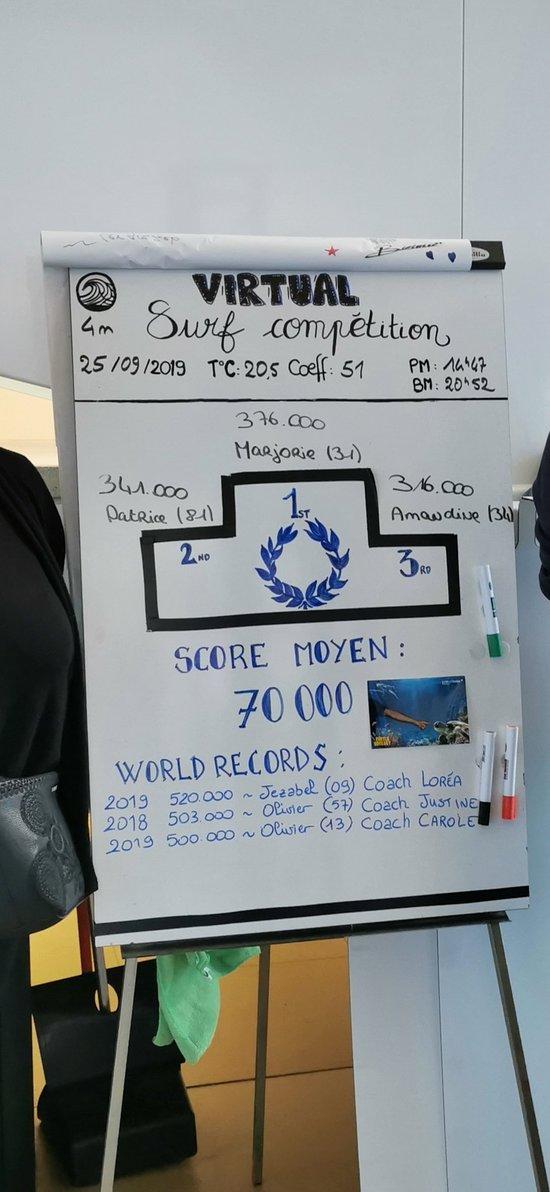 VIRTUAL
4m Surf compétition
25/09/2019 T°C: 20,5 Coeff: 51 PM: 14H47
BM: 20H52
376.000
Marjorie (31)
341.000
Patrice (81)
316.000
Amandine (34)
1ST
2ND
3RD
SCORE MOYEN:
70 000
WORLD RECORDS:
2019 520.000 ~ Jezabel (09) Coach LORÉA
2018 503.000 ~ Olivier (57) Coach JUSTINE
2019 500.000 ~ Olivier (13) Coach CAROLE